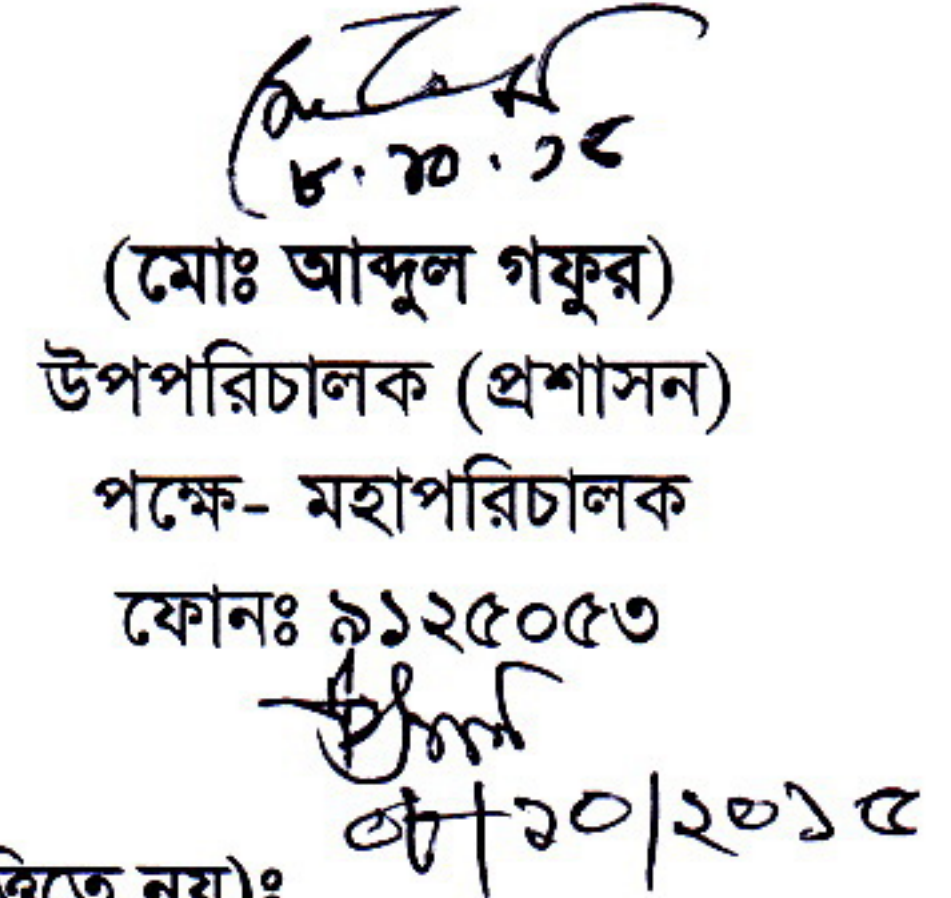 ৮.১০.১৫
(মোঃ আব্দুল গফুর)
উপপরিচালক (প্রশাসন)
পক্ষে- মহাপরিচালক
ফোনঃ ৯১২৫০৫৩
০৮/১০/২০১৫
নয়)ঃ